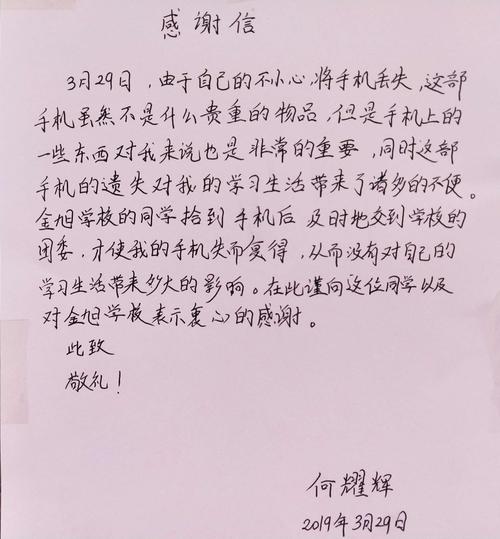 感谢信
3月29日，由于自己的不小心，将手机丢失，这部
手机虽然不是什么贵重的物品，但是手机上的
一些东西对我来说也是非常的重要，同时这部
手机的遗失对我的学习生活带来了诸多的不便。
金旭学校的同学拾到手机后及时地交到学校的
团委，才使我的手机失而复得，从而没有对自己的
学习生活带来多大的影响。在此谨向这位同学以及
对金旭学校表示衷心的感谢。
此致
敬礼！
何耀辉
2019年3月29日